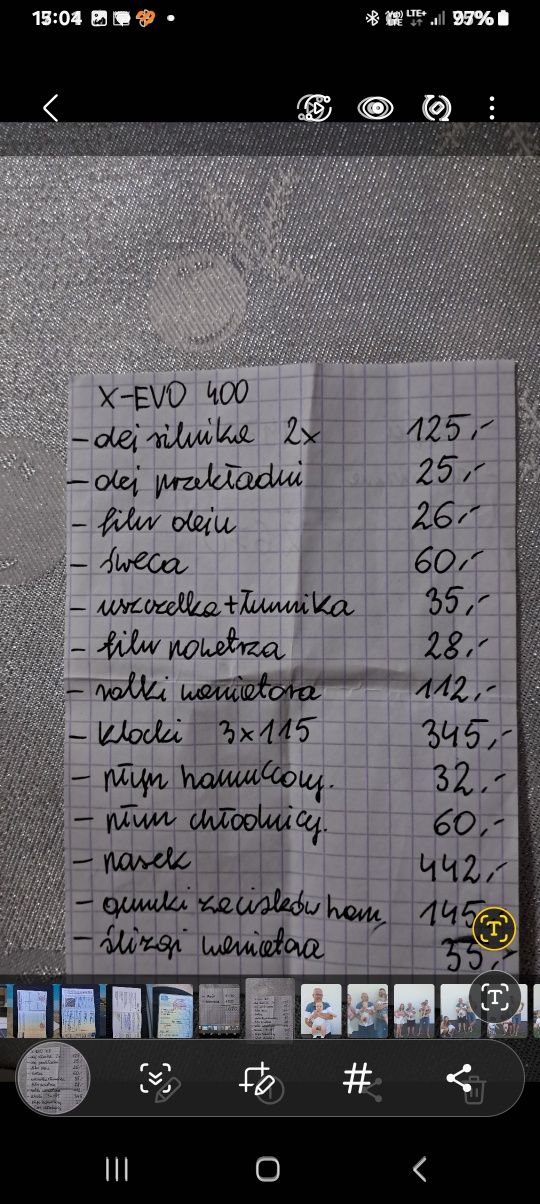 X-EVO 400
- olej silnika 2x 125,-
- olej przekładni 25,-
- filtr oleju 26,-
- świeca 60,-
- uszczelka+tłumika 35,-
- filtr powietrza 28,-
- rolki wariatora 112,-
- klocki 3x115 345,-
- płyn hamulcowy. 32,-
- płyn chłodnicy. 60,-
- pasek 442,-
- gumki zacisków ham, 145
- ślizgi wariatora 35,-